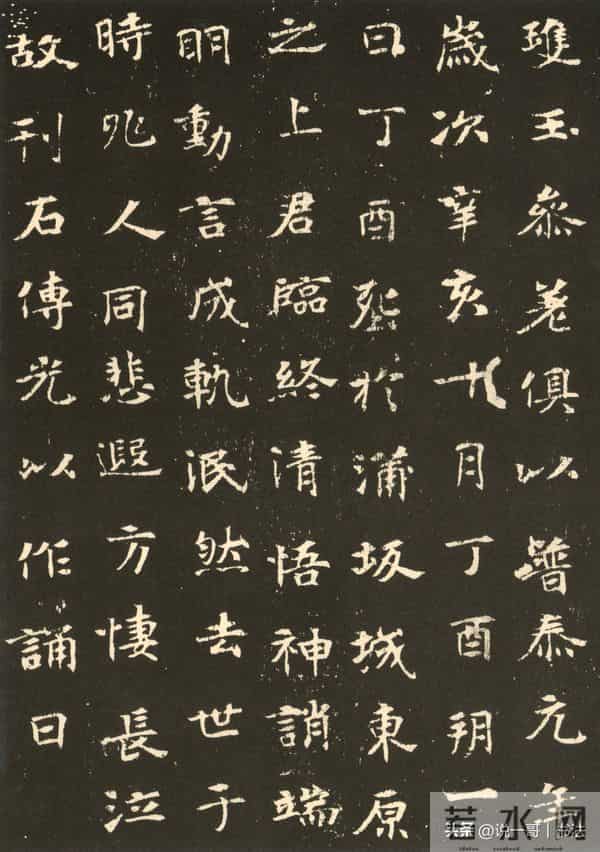 瓊玉參差俱以普泰元年
歲次辛亥十月丁酉朔一
日丁酉葬於蒲坂城東原
之上君臨終清悟神誚端
明動言成軌泯然去世于
時兆人同悲遐方悽長泣
故刊石傳光以作誦曰
若水网
头条 @说一哥丨书法